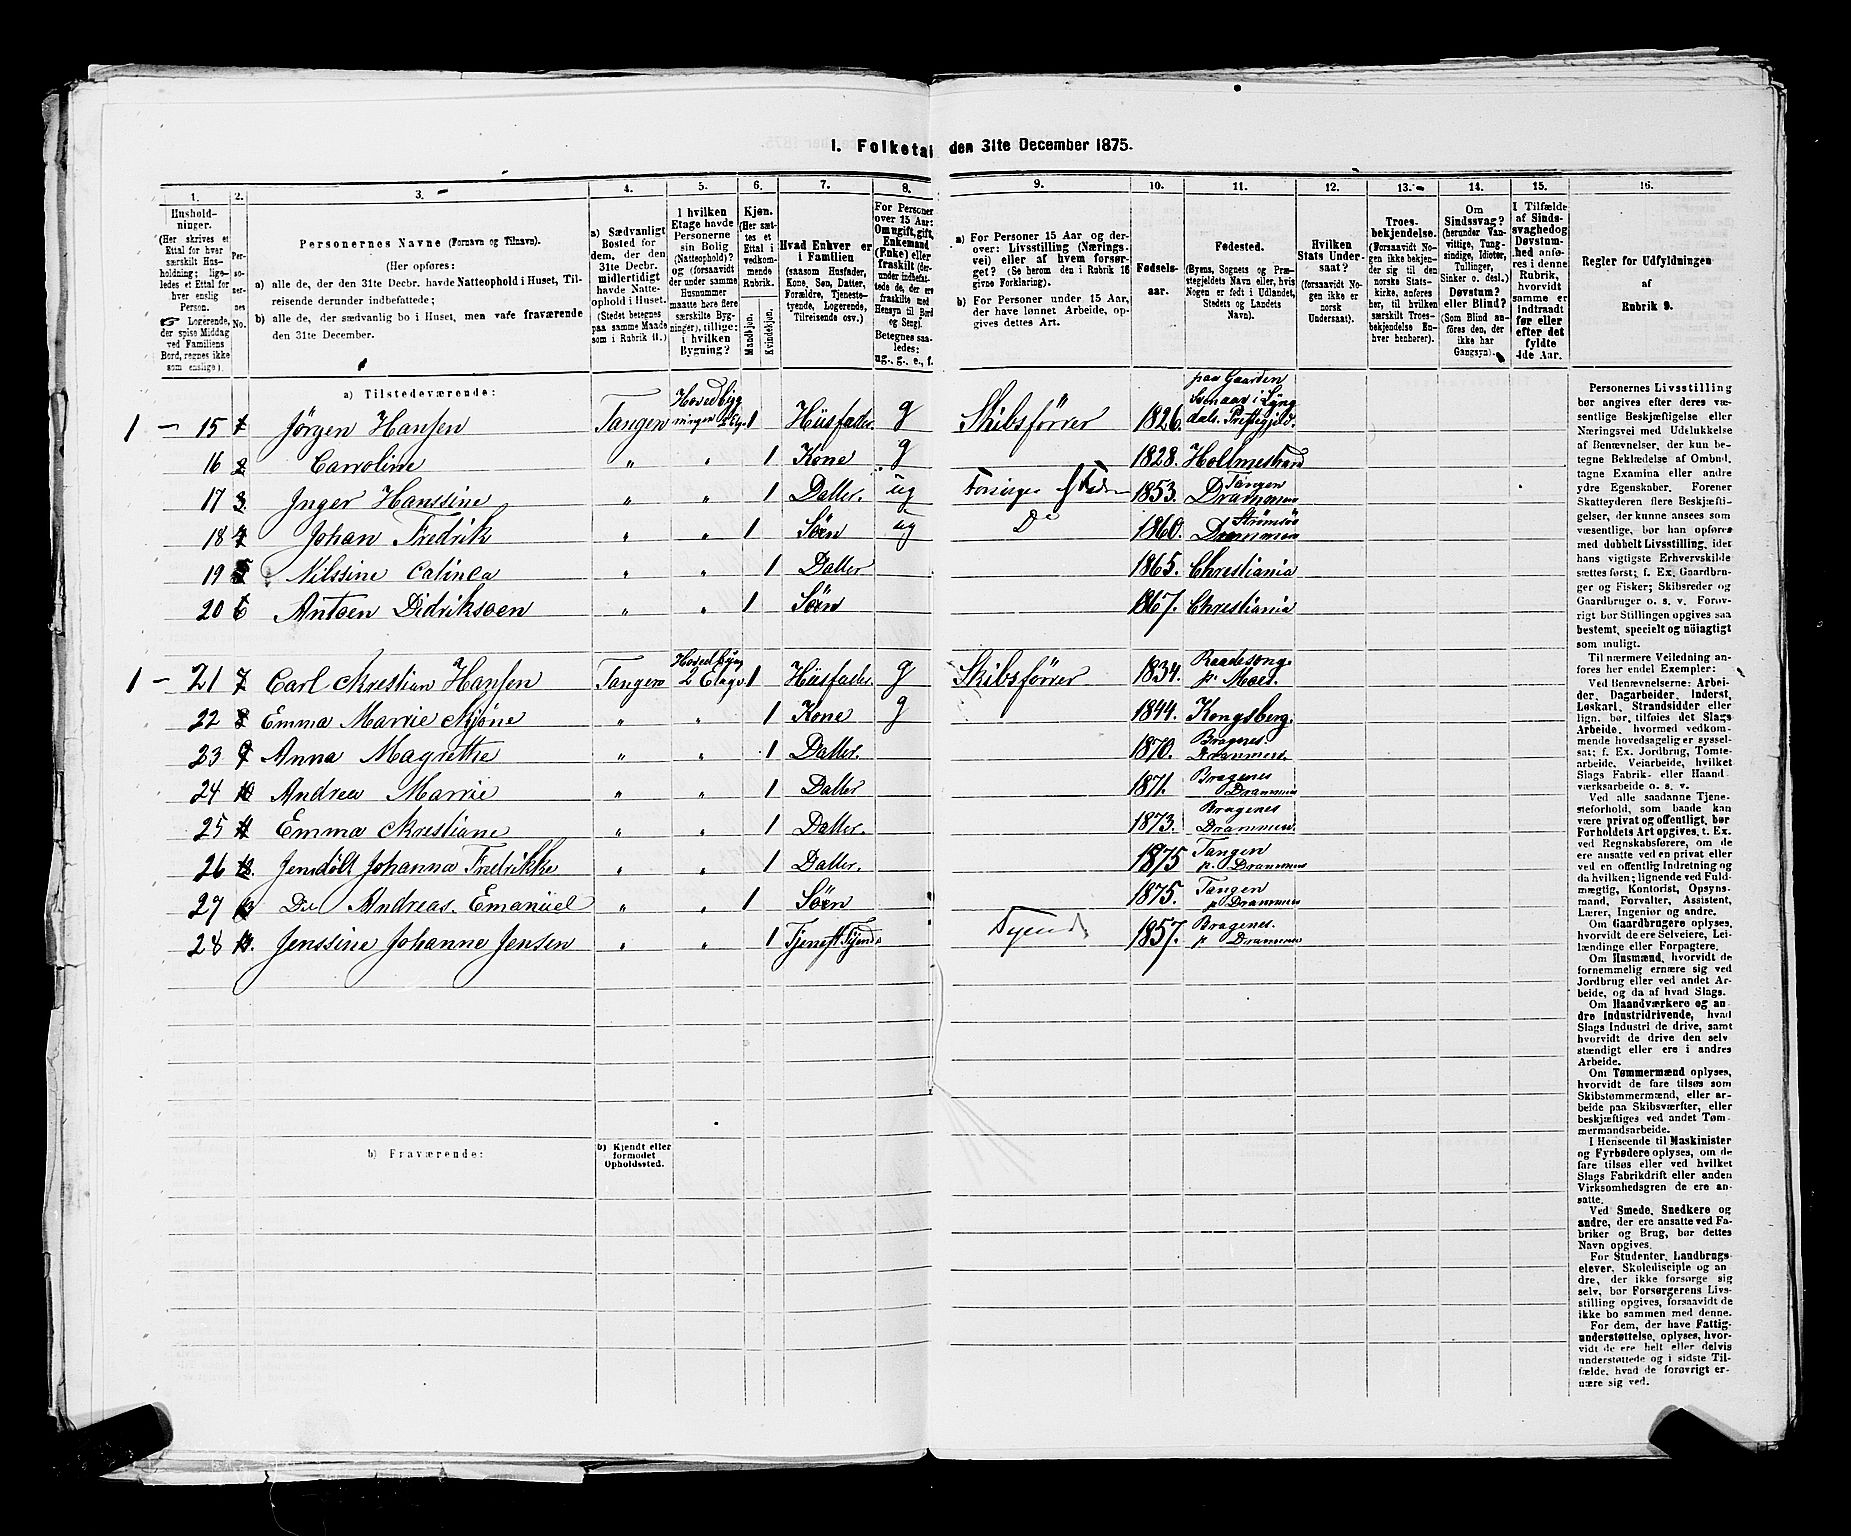 I. Folketal den 31te December 1875.
1. 2. 3. 4. 5. 6. 7. 8. 9. 10. 11. 12. 13. 14. 15. 16.
Husholdninger.
(Her skrives et Ettal for hver særskilt Husholdning; ligeledes et Ettal for hver enslig Person.
☞ Logerende, der spise Middag ved Familiens Bord, regnes ikke som enslige).
Personernes No.
Personernes Navne (Fornavn og Tilnavn).
(Her opføres:
a) alle de, der den 31te Decbr. havde Natteophold i Huset, Tilreisende derunder indbefattede;
b) alle de, der sædvanlig bo i Huset, men vare fraværende den 31te December.
a) Sædvanligt Bosted for dem, der den 31te Decbr. midlertidigt havde Natteophold i Huset. (Stedet betegnes paa samme Maade som i Rubrik 11.)
I hvilken Etage havde Personerne sin Bolig (Natteophold)? og (forsaavidt der under samme Husnummer maatte høre flere særskilte Bygninger), tillige: i hvilken Bygning?
Kjøn. (Her sættes et Ettal i vedkommende Rubrik.
Mandkjøn. Kvindekjøn.
Hvad Enhver er i Familien
(saasom Husfader, Kone, Søn, Datter, Forældre, Tjenestetyende, Logerende, Tilreisende osv.)
For Personer over 15 Aar: Om ugift, gift, Enkemand (Enke) eller fraskilt (derunder indbefattede de, der ere fraskilte med Hensyn til Bord og Seng). Betegnes saaledes: ug., g., e., f.
a) For Personer 15 Aar og derover: Livsstilling (Næringsvei) eller af hvem forsørget? (Se herom den i Rubrik 16 givne Forklaring).
b) For Personer under 15 Aar, der have lønnet Arbeide, opgives dettes Art.
Fødselsaar.
Fødested.
(Byens, Sognets og Præstegjeldets Navn eller, hvis Nogen er født i Udlandet, Stedets og Landets Navn).
Hvilken Stats Undersaat?
(forsaavidt Nogen ikke er norsk Undersaat).
Troesbekjendelse.
(Forsaavidt Nogen ikke bekjender sig til den norske Statskirke, anføres her, til hvilken særskilt Troesbekjendelse Enhver henhører).
Om Sindssvag? (herunder Vanvittige, Tungsindige, Idioter, Tullinger, Sinker o. desl.) Døvstum? eller Blind? (Som Blind anføres den, der ikke har Gangsyn).
I Tilfælde af Sindssvaghed og Døvstumhed anføres i denne Rubrik, hvorvidt samme er indtraadt før eller efter det fyldte 4de Aar.
Regler for Udfyldningen
af
Rubrik 9.
a) Tilstedeværende:
1 – 15 1 Jørgen Hansen Tangen Hovedbygningen 1 Husfader g Skibsfører 1826. paa Gaarden
16 2 Carroline " " 1 Kone g 1828. Hollmestrand
17 3 Inger Hanssine " " 1 Datter. ug 1853. Tangen Drammen
18 4 Johan Fredrik " " 1 Søn ug Do 1860. Strømsø Drammen
19 5 Nilssine Catinca " " 1 Datter 1865. Christiania
20 6 Antoen Didriksoen " " 1 Søn 1867. Christiania
1 – 21 7 Carl Kristian Hansen Tangen 2 Etage 1 Husfader. g Skibsfører 1834. p. Moss.
22 8 Emma Marrie Kjøne " " 1 Kone g 1844. Kongsberg.
23 9 Anna Magrethe " " 1 Datter. 1870. Bragenes Drammen.
24 10 Andrea Marrie " " 1 Datter 1871. Bragenes Drammen
25 11 Emma Kristiane " " 1 Datter. 1873. Bragenes Drammen.
26 12. Johanna Fredrikke " " 1 Datter. 1875 Tangen p. Drammen
27 13 Do Andreas. Emanuel " " 1 Søn 1875. Tangen p Drammen
28 14. Jenssine Johanne Jensen " " 1 Tjenest. Tyende Tyende 1857. Bragenes. p Drammen
b) Fraværende:
b) Kjendt eller formodet Opholdssted.
Personernes Livsstilling
bør angives efter deres væsentlige
Beskjæftigelse eller
Næringsvei med Udelukkelse
af Benævnelser, der kun betegne
Beklædelse af Ombud,
tagne Examina eller andre
ydre Egenskaber. Forener
Skatteyderen flere Beskjæftigelser,
der kunne ansees som
væsentlige, bør han opføres
med dobbelt Livsstilling, idet
hans vigtigste Erhvervskilde
sættes først; f. Ex. Gaardbruger
og Fisker; Skibsreder og
Gaardbruger o. s. v. Forøvrigt
bør Stillingen opgives saa
bestemt, specielt og nöiagtigt
som muligt.
Til nærmere Veiledning anføres
her endel Exempler:
Ved Benævnelserne: Arbeider,
Dagarbeider, Inderst,
Løskarl, Strandsidder eller
lign. bør, tilføies det Slags
Arbeide, hvormed vedkommende
hovedsagelig er sysselsat;
f. Ex. Jordbrug, Tomtearbeide,
Veiarbeide, hvilket
Slags Fabrik- eller Haandværksarbeide
o. s. v.
Ved alle saadanne Tjenesteforhold,
som baade kan
være privat og offentligt, bør
Forholdets Art opgives, t. Ex.
ved Regnskabsførere, om de
ere ansatte ved en privat eller
ved en offentlig Indretning og
da hvilken; lignende ved Fuldmægtig,
Kontorist, Opsynsmand,
Forvalter, Assistent,
Lærer, Ingeniør og andre.
Om Gaardbrugere oplyses,
hvorvidt de ere Selveiere, Leilændinge
eller Forpagtere.
Om Husmænd, hvorvidt de
fornemmelig ernære sig ved
Jordbrug eller ved andet Arbeide,
og da af hvad Slags.
Om Haandværkere og andre
Industridrivende, hvad
Slags Industri de drive, samt
hvorvidt de drive den selvstændigt
eller ere i andres
Arbeide.
Om Tømmermænd oplyses,
hvorvidt de fare tilsøs som
Skibstømmermænd, eller arbeide
paa Skibsværfter, eller
beskjæftiges ved andet Tømmermandsarbeide.
I Henseende til Maskinister
og Fyrbødere oplyses, om de
fare tilsøs eller ved hvilket
Slags Fabrikdrift eller anden
Virksomhedsgren de ere ansatte.
Ved Smede, Snedkere og
andre, der ere ansatte ved Fabriker
og Brug, bør dettes
Navn opgives.
For Studenter, Landbrugselever,
Skoledisciple og andre,
der ikke forsørge sig
selv, bør Forsørgerens Livsstilling
opgives, forsaavidt de
ikke bo sammen med denne.
For dem, der have Fattigunderstøttelse,
oplyses, hvorvidt
de ere helt eller delvis
understøttede og i sidste Tilfælde,
hvad de forøvrigt ernære
sig ved.